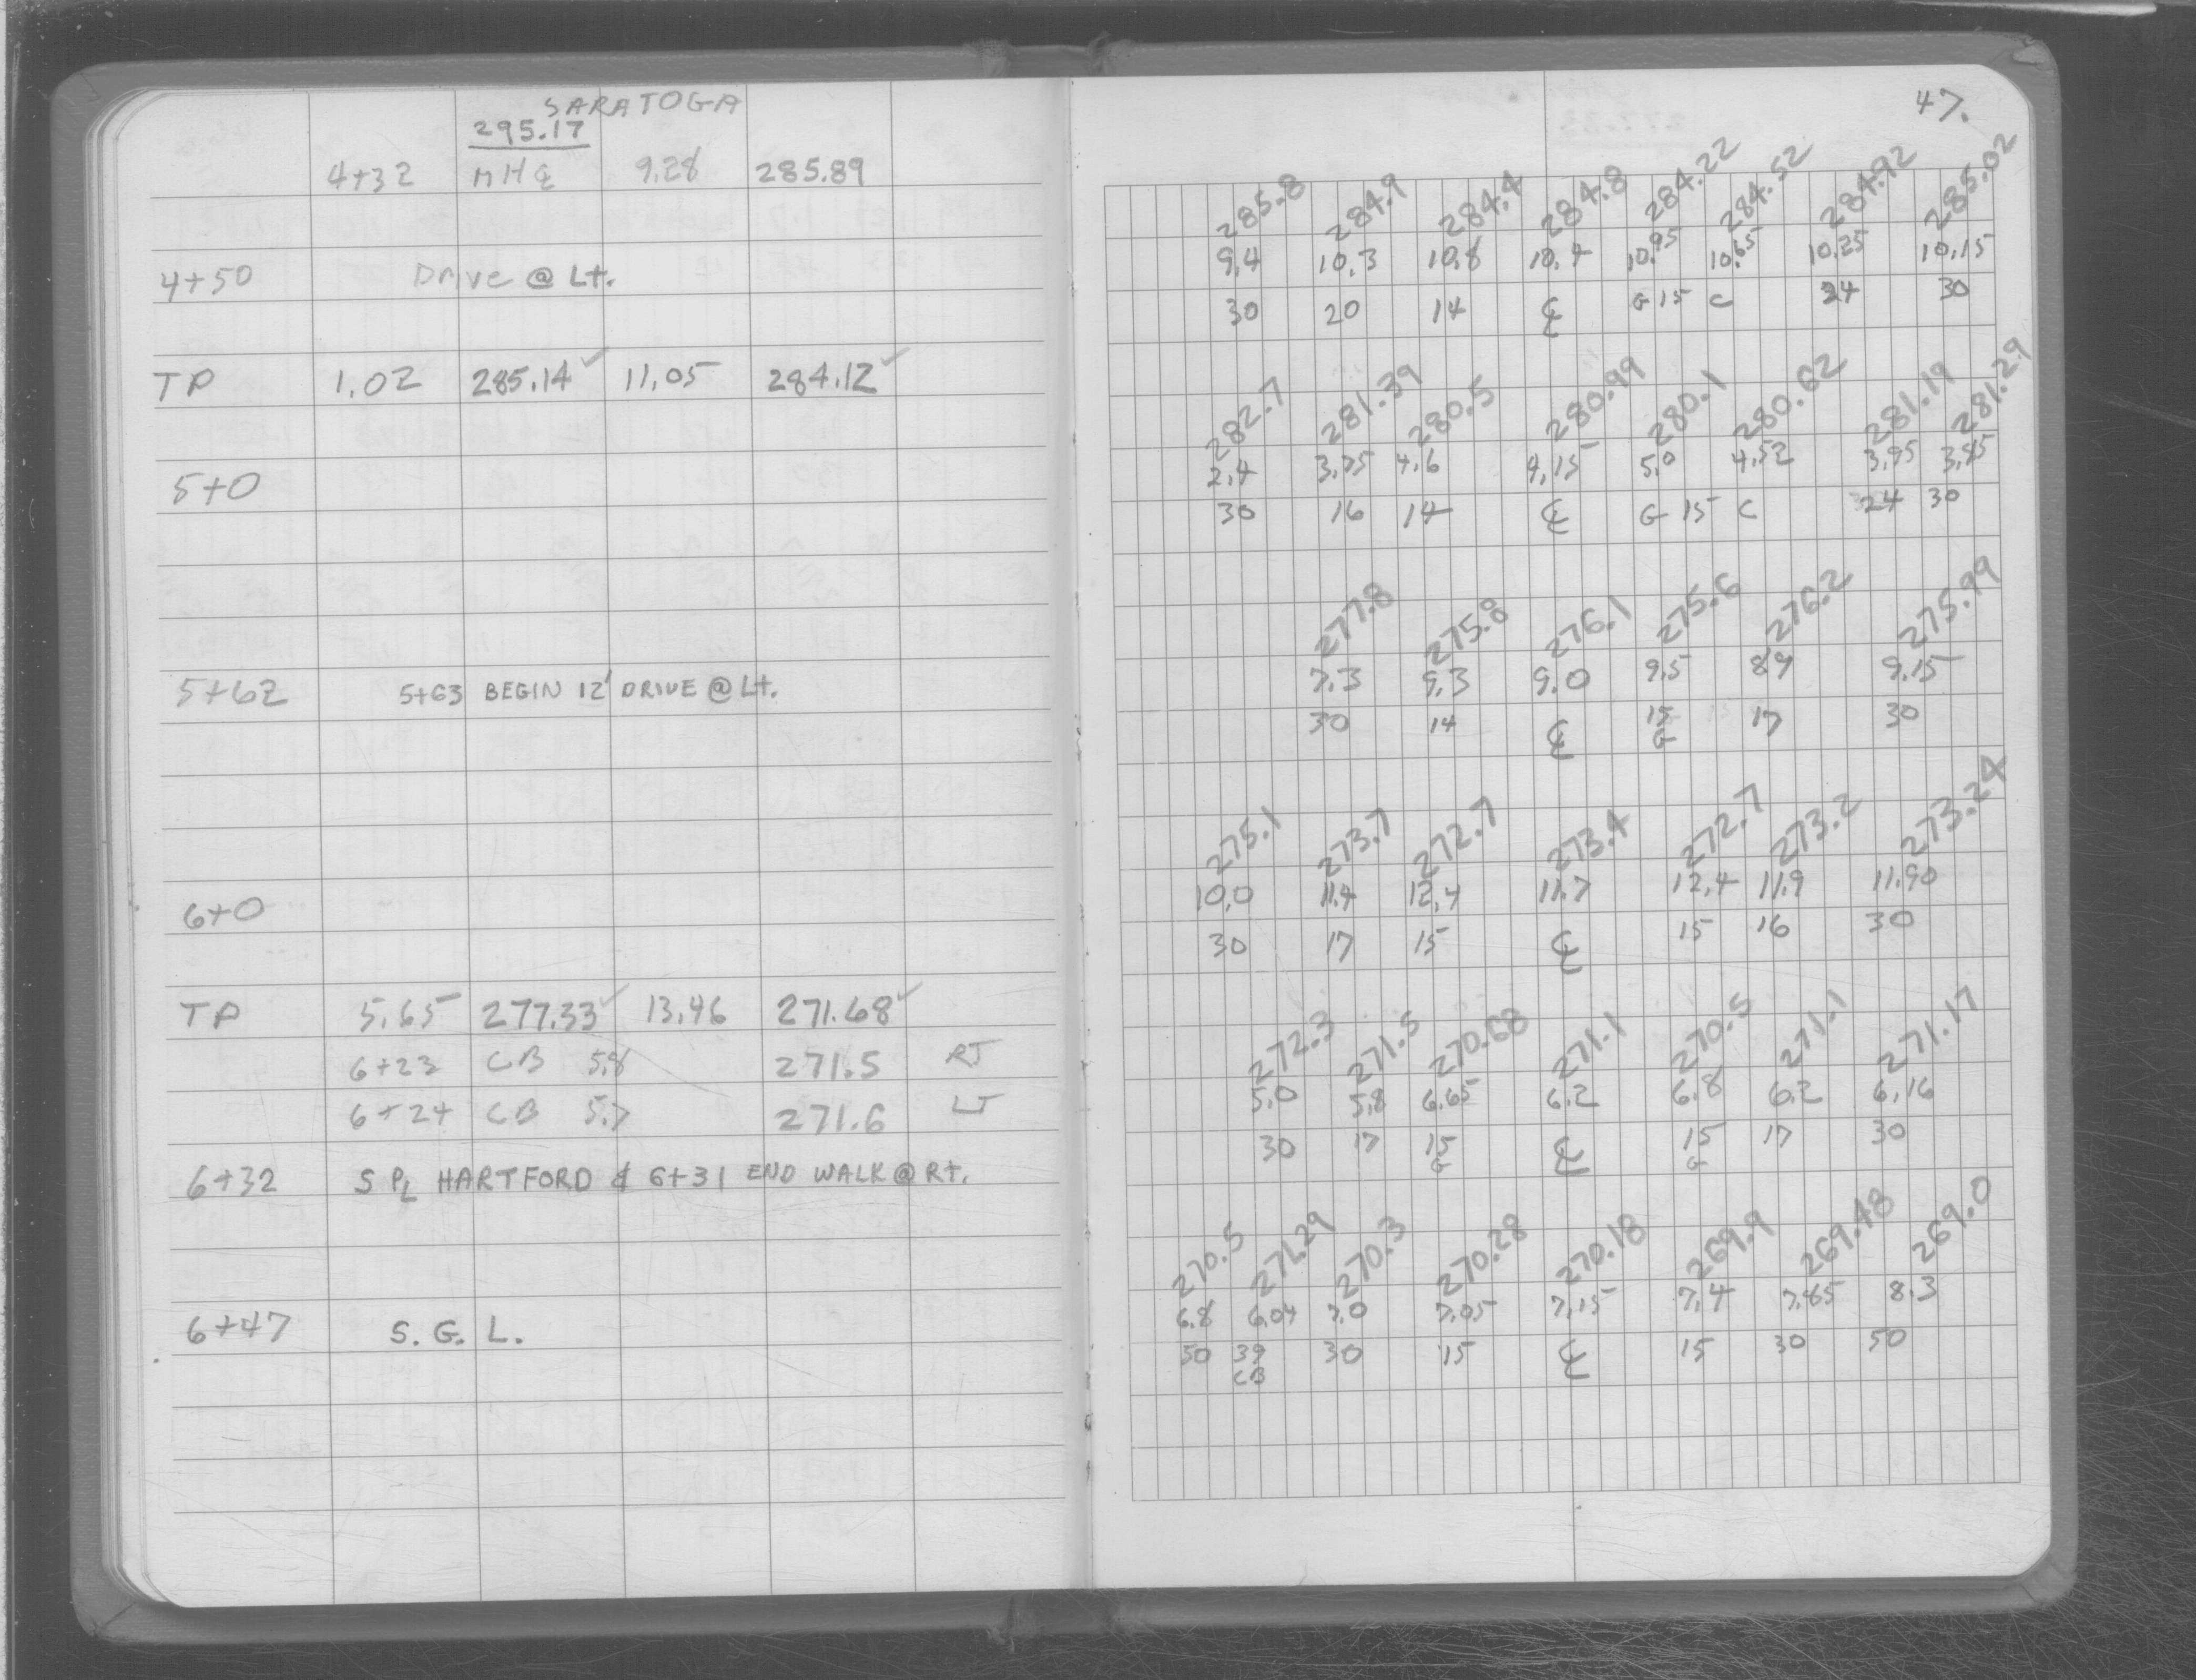 SARATOGA
295.17
4+32 MH ℄ 9.28 285.89
4+50 Drive @ Lt.
TP 1.02 285.14 ✓ 11.05 284.12 ✓
5+0
5+62 5+63 BEGIN 12' DRIVE @ Lt.
6+0
TP 5.65 277.33 ✓ 13.46 271.68 ✓
6+23 CB 5.8 271.5 RT
6+24 CB 5.7 271.6 LT
6+32 S PL HARTFORD & 6+31 END WALK @ Rt.
6+47 S. G. L.
47.
285.8 284.9 284.4 284.8 284.22 284.52 284.92 285.02
9.4 10.3 10.8 10.4 10.95 10.65 10.25 10.15
30 20 14 ℄ G 15 C 24 30
282.7 281.39 280.5 280.99 280.1 280.62 281.19 281.29
2.4 3.75 4.6 4.15 5.0 4.52 3.95 3.85
30 16 14 ℄ G 15 C 24 30
277.8 275.8 276.1 275.6 276.2 275.99
7.3 9.3 9.0 9.5 8.9 9.15
30 14 ℄ 15 17 30
G
275.1 273.7 272.7 273.4 272.7 273.2 273.24
10.0 11.4 12.4 11.7 12.4 11.9 11.90
30 17 15 ℄ 15 16 30
272.3 271.5 270.68 271.1 270.5 271.1 271.17
5.0 5.8 6.65 6.2 6.8 6.2 6.16
30 17 15 ℄ 15 17 30
G G
270.5 271.29 270.3 270.28 270.18 269.9 269.48 269.0
6.8 6.04 7.0 7.05 7.15 7.4 7.85 8.3
50 39 30 15 ℄ 15 30 50
CB